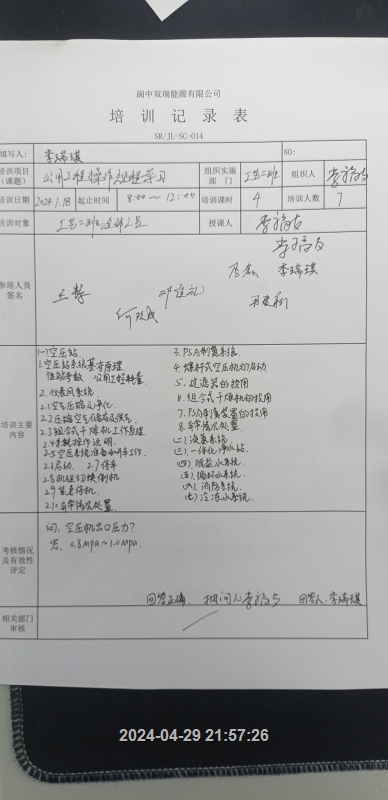 阆中双瑞能源有限公司
培训记录表
SR/JL-SC-014
填写人： 李瑞琪 NO:
培训项目（课题） 公用工程操作规程学习 组织实施部门 工艺二班 组织人
培训日期 2024.1.18 起止时间 8:00～12:00 培训课时 4 培训人数 7
培训对象 工艺二班全体人员 授课人
参培人员签名
李瑞琪
培训主要内容
(一)空压站
1.空压站系统基本原理
性能参数 公用工程耗量
2.仪表风系统
2.1空气压缩及净化
2.2压缩空气储存及供气
2.3组合式干燥机工作原理
2.4来耗操作说明
2.5空压系统准备和开车工作
2.6启动 2.7停车
2.8机组切换倒机
2.9紧急停机
2.10异常情况处置
3.PSA制氮系统
4.螺杆式空压机的启动
5.过滤器的投用
6.组合式干燥机的投用
7.PSA制氮装置的投用
8.异常情况处置
(二).液氮系统
(三).一体化净水站
(四).脱盐水系统
(五).循环水系统
(六).消防系统
(七).冷冻水系统
考核情况及有效性评定
问：空压机出口压力？
答：0.8MPa～1.0MPa.
回答正确 提问人 回答人：李瑞琪
相关部门审核
2024-04-29 21:57:26